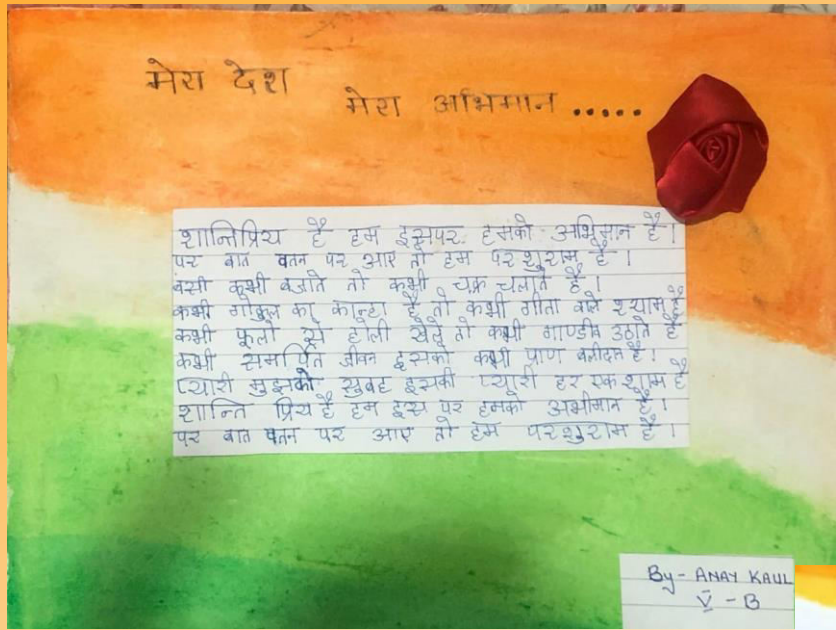 मेरा देश
मेरा अभिमान .....
शान्तिप्रिय है हम इसपर हमको अभिमान है।
पर बात वतन पर आए तो हम परशुराम है।
बंसी कभी बजाते तो कभी चक्र चलाते है।
कभी गोकुल का कान्हा है तो कभी गीता वाले श्याम है
कभी फूलो से होली खेले तो कभी गाण्डीव उठाते है
कभी समर्पित जीवन इसको कभी प्राण बलीदान है।
प्यारी मुझको सुबह इसकी प्यारी हर एक शाम है
शान्ति प्रिय है हम इस पर हमको अभीमान है।
पर बात वतन पर आए तो हम परशुराम है।
By - ANAY KAUL
V - B